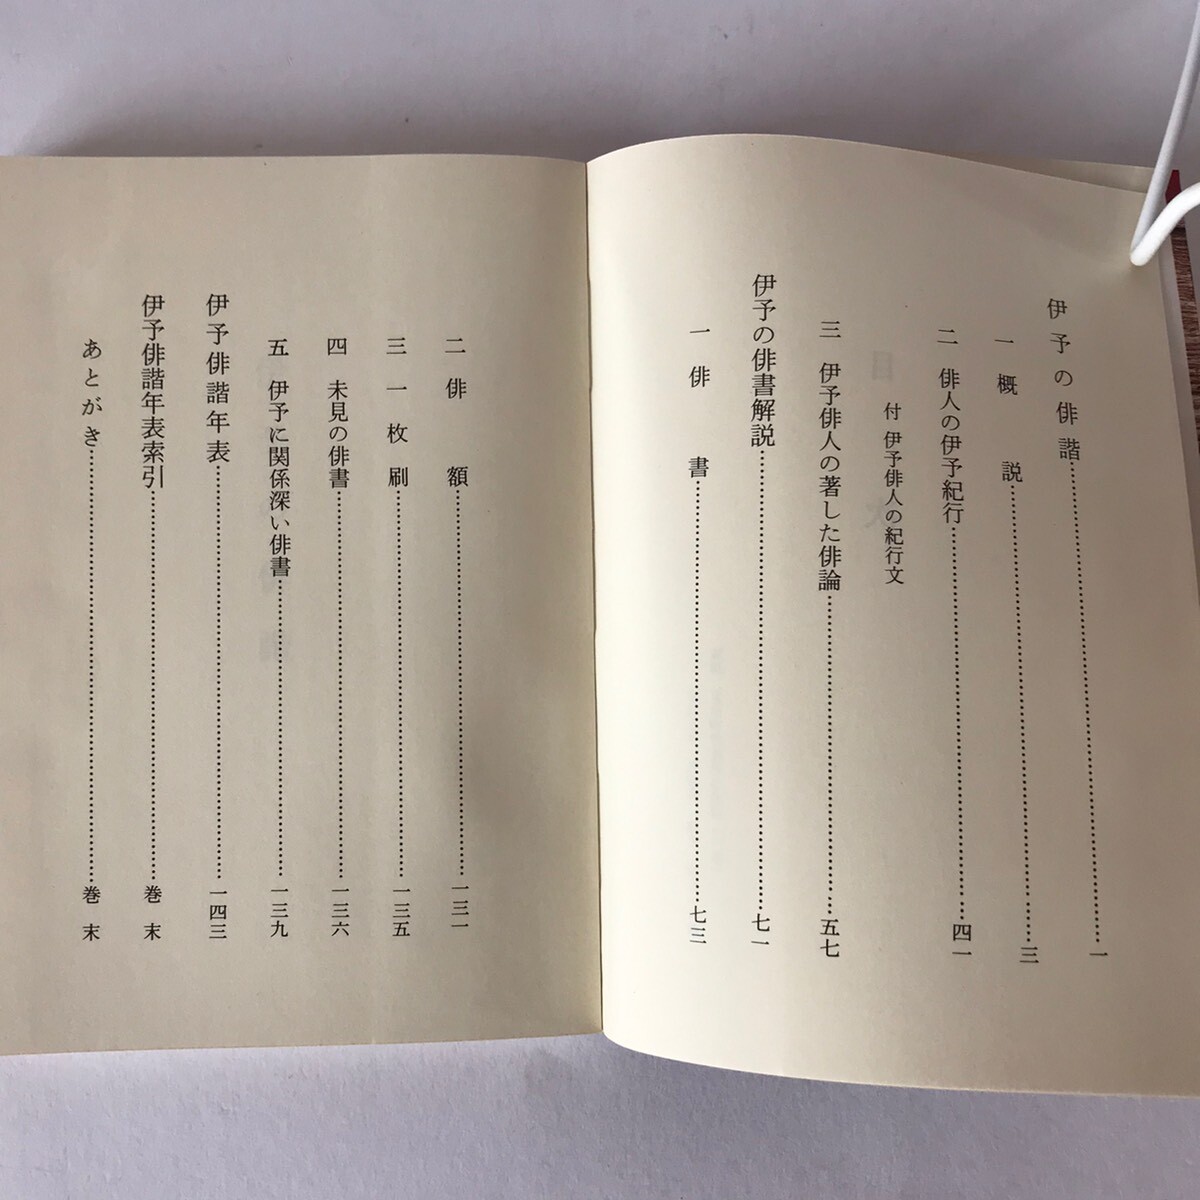 伊予の俳諧……………………一
一 概説……………………三
二 俳人の伊予紀行……………………四一
付 伊予俳人の紀行文
三 伊予俳人の著した俳論……………………五七
伊予の俳書解説……………………七一
一 俳書……………………七三
二 俳額……………………一三一
三 一枚刷……………………一三五
四 未見の俳書……………………一三六
五 伊予に関係深い俳書……………………一三九
伊予俳諧年表……………………一四三
伊予俳諧年表索引……………………巻末
あとがき……………………巻末